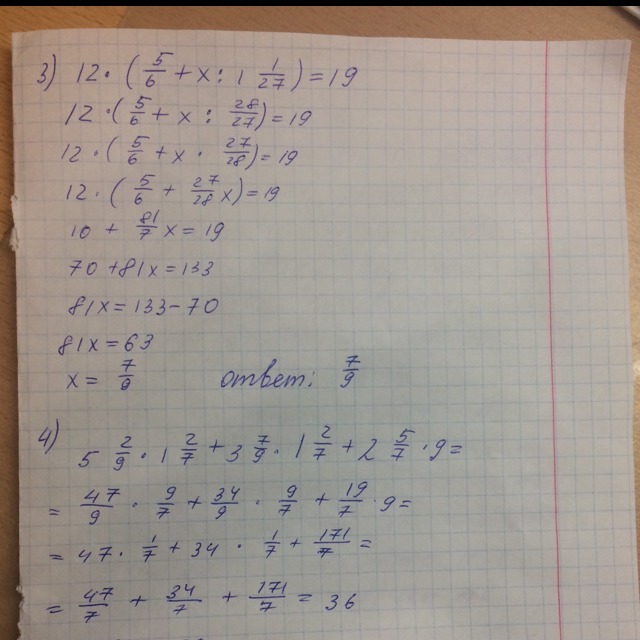 3) 12 · (5/6 + x : 1 1/27) = 19
12 · (5/6 + x : 28/27) = 19
12 · (5/6 + x · 27/28) = 19
12 · (5/6 + 27/28 x) = 19
10 + 81/7 x = 19
70 + 81x = 133
81x = 133 - 70
81x = 63
x = 7/9 ответ: 7/9
4) 5 2/9 · 1 2/7 + 3 7/9 · 1 2/7 + 2 5/7 · 9 =
= 47/9 · 9/7 + 34/9 · 9/7 + 19/7 · 9 =
= 47 · 1/7 + 34 · 1/7 + 171/7 =
= 47/7 + 34/7 + 171/7 = 36